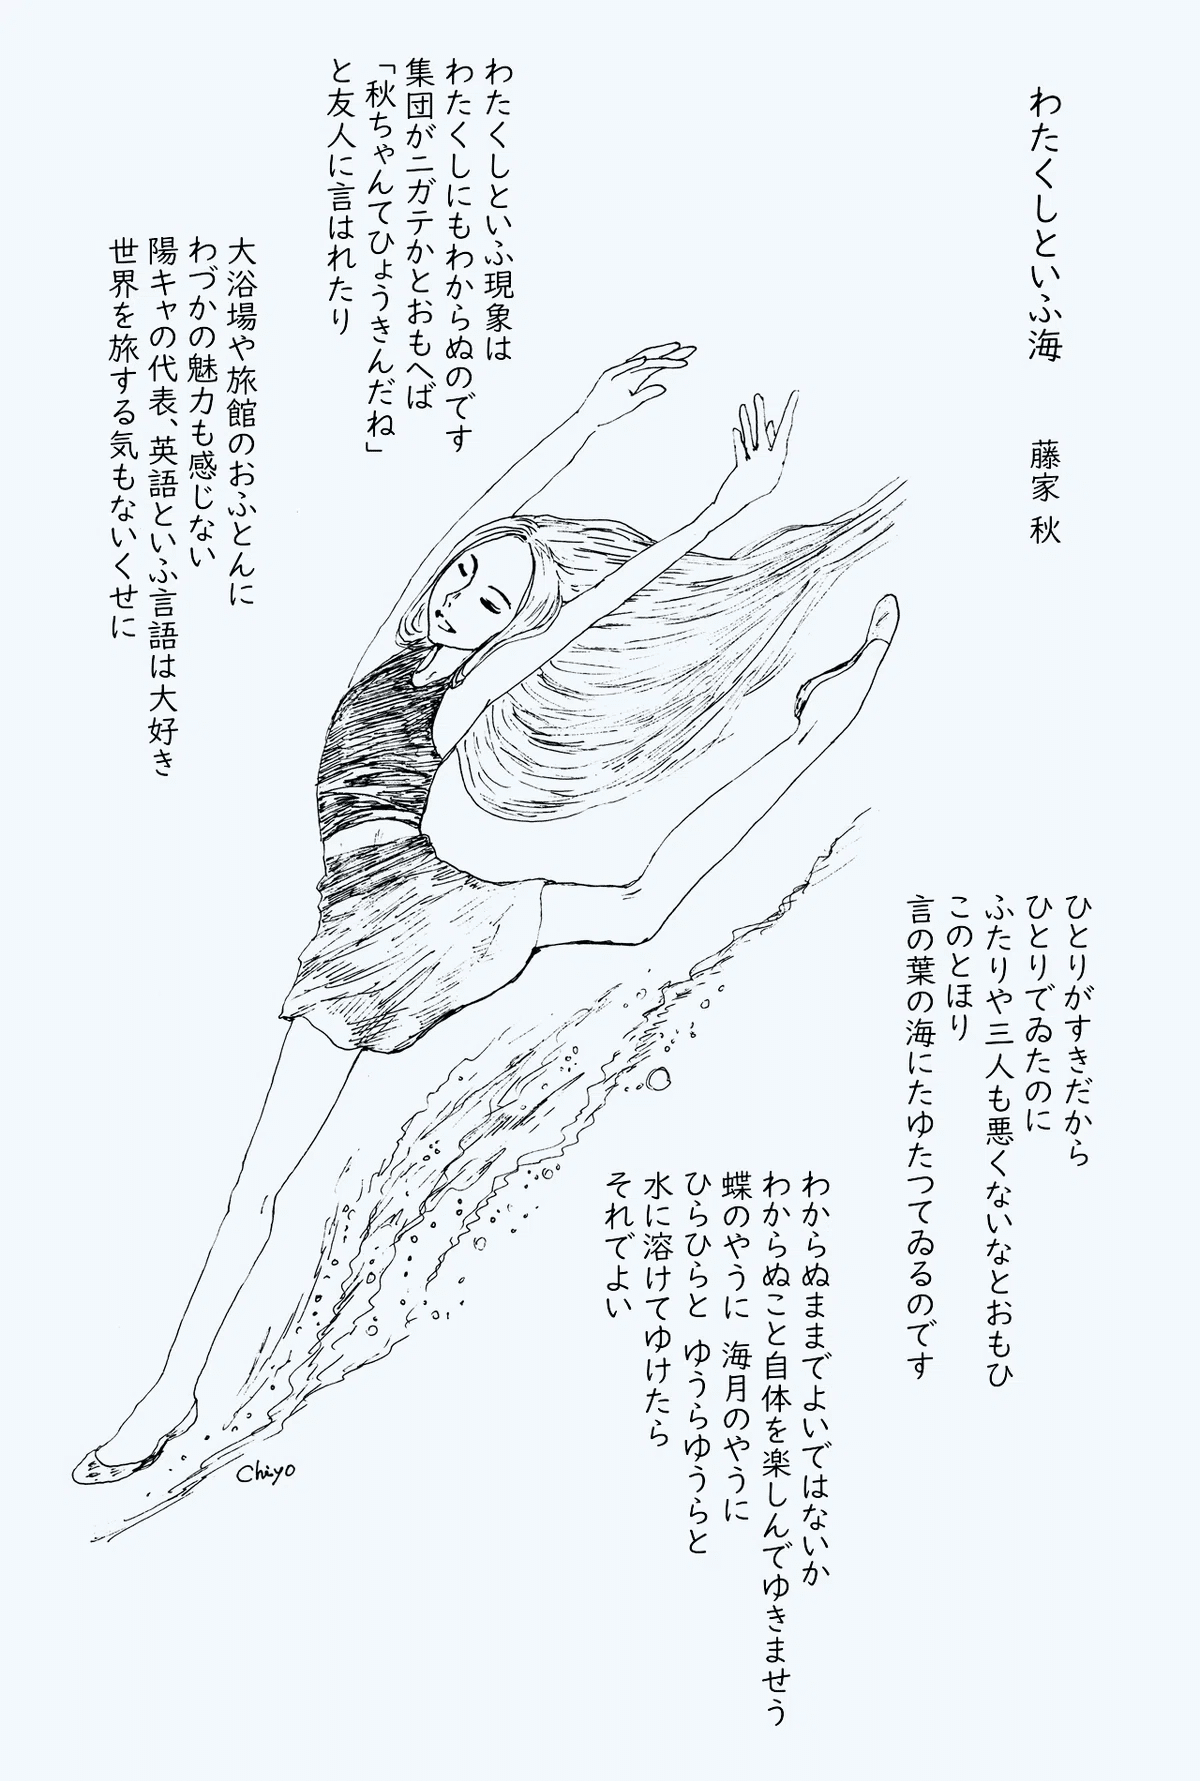 わたくしといふ海　藤家 秋
わたくしといふ現象は
わたくしにもわからぬのです
集団がニガテかとおもへば
「秋ちゃんてひょうきんだね」
と友人に言はれたり
大浴場や旅館のおふとんに
わづかの魅力も感じない
陽キャの代表、英語といふ言語は大好き
世界を旅する気もないくせに
ひとりがすきだから
ひとりでゐたのに
ふたりや三人も悪くないなとおもひ
このとほり
言の葉の海にたゆたつてゐるのです
わからぬままでよいではないか
わからぬこと自体を楽しんでゆきませう
蝶のやうに　海月のやうに
ひらひらと　ゆうらゆうらと
水に溶けてゆけたら
それでよい
Chiyo